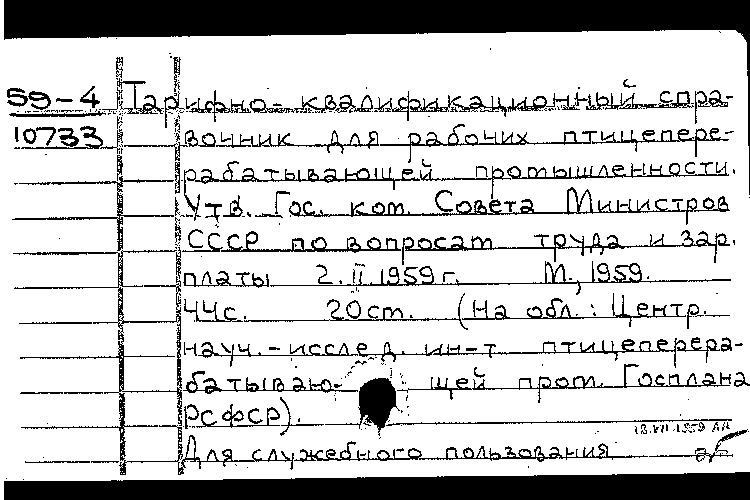 59-4 Тарифно-квалификационный спра-
10733 вочник для рабочих птицепере-
рабатывающей промышленности.
Утв. Гос. ком. Совета Министров
СССР по вопросам труда и зар.
платы 2.II.1959г. М., 1959.
44с. 20см. (На обл.: Центр.
науч.-исслед. ин-т птицеперера-
батываю- щей пром. Госплана
РСФСР).
18.VII.1959
Для служебного пользования